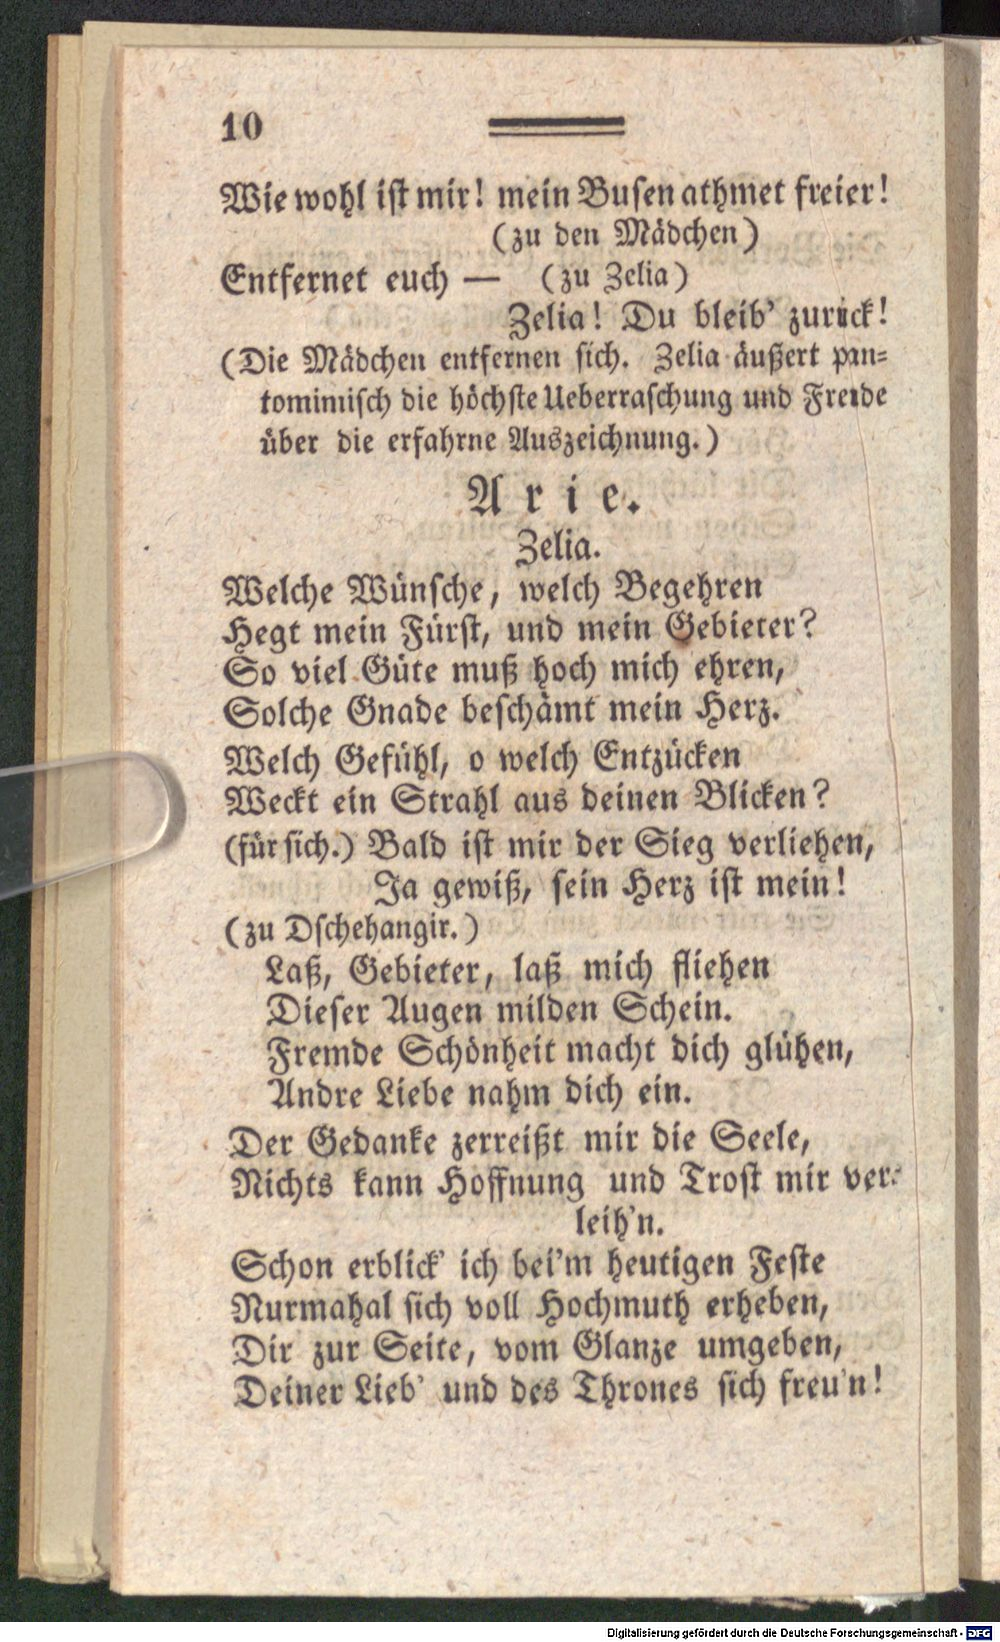 10
Wie wohl ist mir! mein Busen athmet freier!
(zu den Mädchen)
Entfernet euch — (zu Zelia)
Zelia! Du bleib' zurück!
(Die Mädchen entfernen sich. Zelia äußert pan-
tomimisch die höchste Ueberraschung und Freude
über die erfahrne Auszeichnung.)
Arie.
Zelia.
Welche Wünsche, welch Begehren
Hegt mein Fürst, und mein Gebieter?
So viel Güte muß hoch mich ehren,
Solche Gnade beschämt mein Herz.
Welch Gefühl, o welch Entzücken
Weckt ein Strahl aus deinen Blicken?
(für sich.) Bald ist mir der Sieg verliehen,
Ja gewiß, sein Herz ist mein!
(zu Dschehangir.)
Laß, Gebieter, laß mich fliehen
Dieser Augen milden Schein.
Fremde Schönheit macht dich glühen,
Andre Liebe nahm dich ein.
Der Gedanke zerreißt mir die Seele,
Nichts kann Hoffnung und Trost mir ver-
leih'n.
Schon erblick' ich bei'm heutigen Feste
Nurmahal sich voll Hochmuth erheben,
Dir zur Seite, vom Glanze umgeben,
Deiner Lieb' und des Thrones sich freu'n!
Digitalisierung gefördert durch die Deutsche Forschungsgemeinschaft - DFG